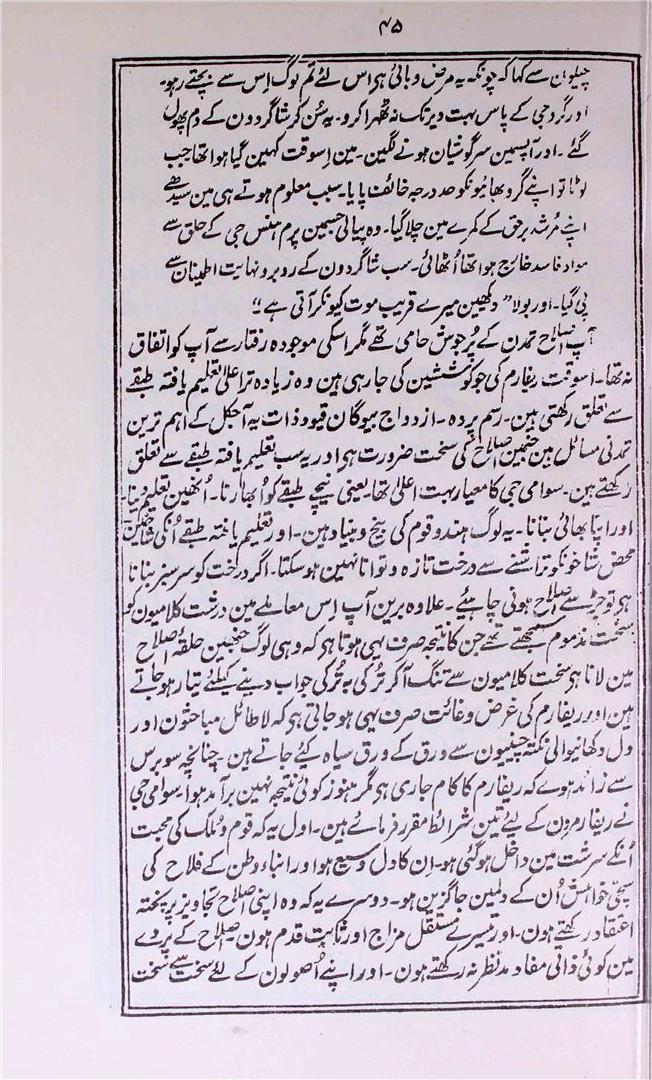 ۴۵
چیلوان سے کہا کہ چونکہ یہ مرض وبائی ہی اس لئے تم لوگ اِس سے بچتے رہو۔
اور گرو جی کے پاس بہت دیر تک نہ ٹھہرا کرو۔ یہ سُن کر شاگردون کے دم پھول
گئے۔ اور آپسمین سرگوشیان ہونے لگین۔ مین اِسوقت کہین گیا ہوا تھا جب
لوٹا تو اپنے گرو بھائیونکو حد درجہ خائف پایا۔ سبب معلوم ہوتے ہی مین سیدھے
اپنے مُرشد برحق کے کمرے مین چلا گیا۔ وہ پیالی جسمین پرم ہنس جی کے حلق سے
مواد فاسد خارج ہوا تھا اُٹھائی۔ سب شاگردون کے روبرو نہایت اطمینان سے
پی گیا۔ اور بولا ”دیکھین میرے قریب موت کیونکر آتی ہے“
آپ اصلاح تمدن کے پُرجوش حامی تھے مگر اسکی موجودہ رفتار سے آپ کو اتفاق
نہ تھا۔ اسوقت ریفارم کی جو کوششین کی جا رہی ہین وہ زیادہ تر اعلیٰ تعلیم یافتہ طبقے
سے تعلق رکھتی ہین۔ رسم پردہ۔ ازدواج بیوگان قیود ذات یہ آجکل کے اہم ترین
تمدنی مسائل ہین جنمین اصلاح کی سخت ضرورت ہی اور یہ سب تعلیم یافتہ طبقے سے تعلق
رکھتے ہین۔ سوامی جی کا معیار بہت اعلیٰ تھا یعنی نیچے طبقے کو اُبھارنا۔ اُنھین تعلیم دینا۔
اور اپنا بھائی بنانا۔ یہ لوگ ہندو قوم کی بیخ و بنیاد ہین۔ اور تعلیم یافتہ طبقے اُنکی شاخین
محض شاخونکو تراشنے سے درخت تازہ و توانا نہین ہو سکتا۔ اگر درخت کو سرسبز بنانا
ہی تو جڑ سے اصلاح ہونی چاہئے۔ علاوہ برین آپ اِس معاملے مین درشت کلامیون کو
سخت مذموم سمجھتے تھے جن کا نتیجہ صرف یہی ہوتا ہی کہ وہی لوگ جنھین حلقہ اصلاح
مین لانا ہی سخت کلامیون سے تنگ آ کر ترُکی بہ ترُکی جواب دینے کیلئے تیار ہو جاتے
ہین اور ریفارم کی غرض و غائت صرف یہی ہو جاتی ہی کہ لا طائل مباحثون اور
دل دکھانیوالی نکتہ چینیون سے ورق کے ورق سیاہ کیئے جاتے ہین۔ چنانچہ سو برس
سے زائد ہوے کہ ریفارم کا کام جاری ہی مگر ہنوز کوئی نتیجہ نہین برآمد ہوا۔ سوامی جی
نے ریفارمرون کے لیئے تین شرائط مقرر فرمائے ہین۔ اول یہ کہ قوم و مُلک کی محبت
اُنکے سرشت مین داخل ہو گئی ہو۔ اِن کا دل وسیع ہو اور ابناء وطن کے فلاح کی
سچی خواہش اُن کے دلمین جاگزین ہو۔ دوسرے یہ کہ وہ اپنی اصلاح تجاویز پر پختہ
اعتقاد رکھتے ہون۔ اور تیسرے مستقل مزاج اور ثابت قدم ہون اصلاح کے پردے
مین کوئی ذاتی مفاد مدنظر نہ رکھتے ہون۔ اور اپنے اُصولون کے لئے سخت سے سخت